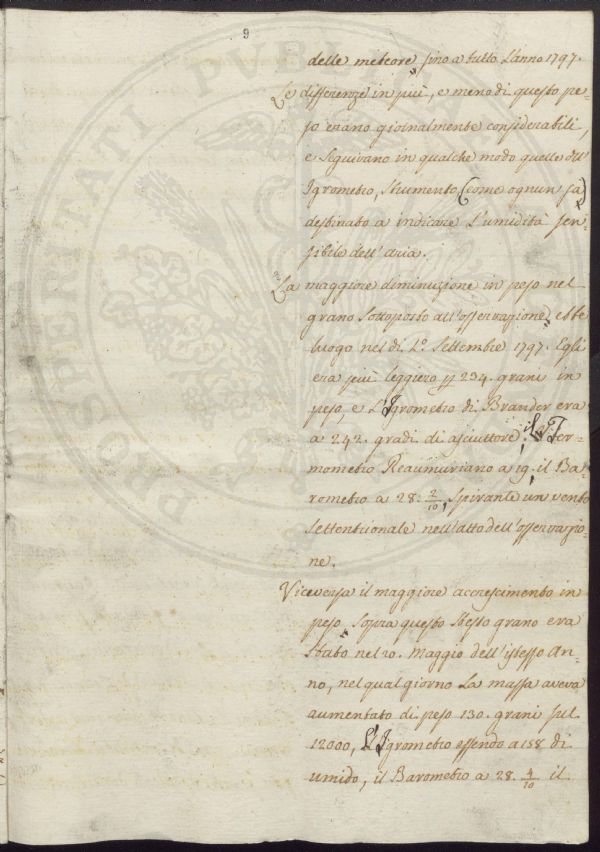 9
delle meteore, sino a tutto l'anno 1797.
Le differenze in più, e meno di questo pe-
so erano giornalmente considerabili,
e seguivano in qualche modo quelle dell'
Igrometro, strumento (come ognun sa)
destinato a indicare l'umidità sen-
sibile dell'aria.
La maggiore diminuzione in peso nel
grano sottoposto all'osservazione, ebbe
luogo nel dì 1.º Settembre 1797. Egli
era più leggiero 234. grani in
peso, e l'Igrometro di Brander era
a 242. gradi di asciuttore, il Ter-
mometro Reaumuriano a 19. il Ba-
rometro a 28. 2/10, spirante un vento
settentrionale nell'atto dell'osservazio-
ne.
Viceversa il maggiore accrescimento in
peso, sopra questo stesso grano era
stato nel 20. Maggio dell'istesso An-
no, nel qual giorno la massa aveva
aumentato di peso 130. grani sul
12000, l'Igrometro essendo a 158 di
umido, il Barometro a 28. 4/10 il
PROSPERITATI PUBLICAE